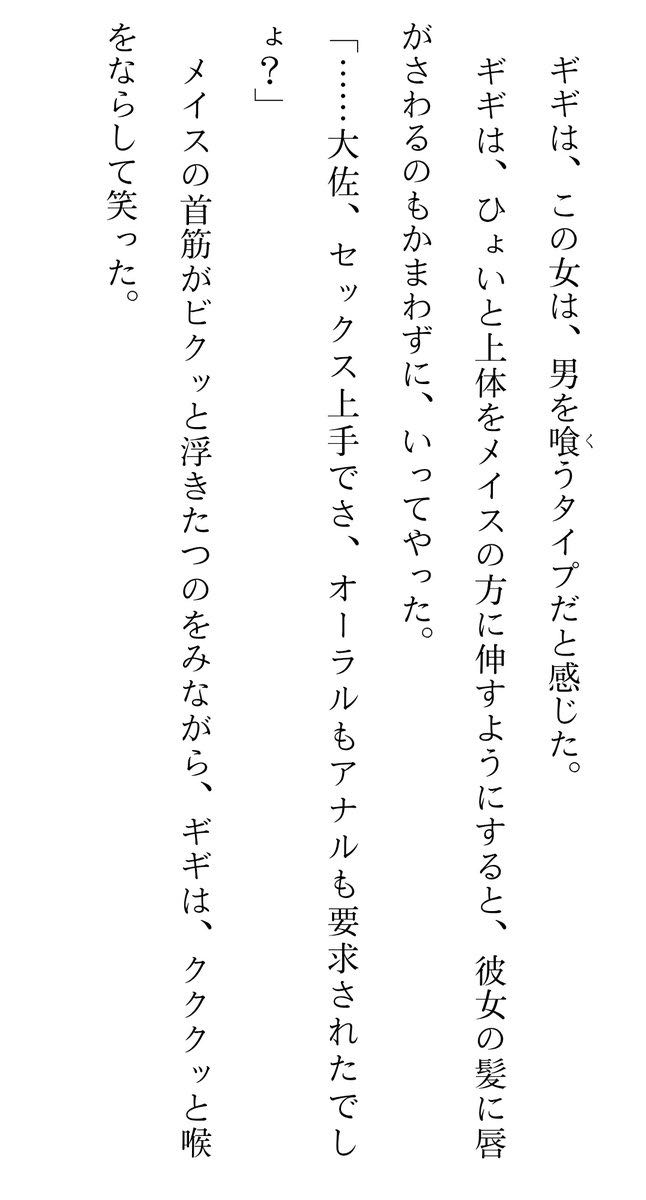 ギギは、この女は、男を喰うタイプだと感じた。
ギギは、ひょいと上体をメイスの方に伸すようにすると、彼女の髪に唇
がさわるのもかまわずに、いってやった。
「……大佐、セックス上手でさ、オーラルもアナルも要求されたでし
ょ?」
メイスの首筋がビクッと浮きたつのをみながら、ギギは、クククッと喉
をならして笑った。